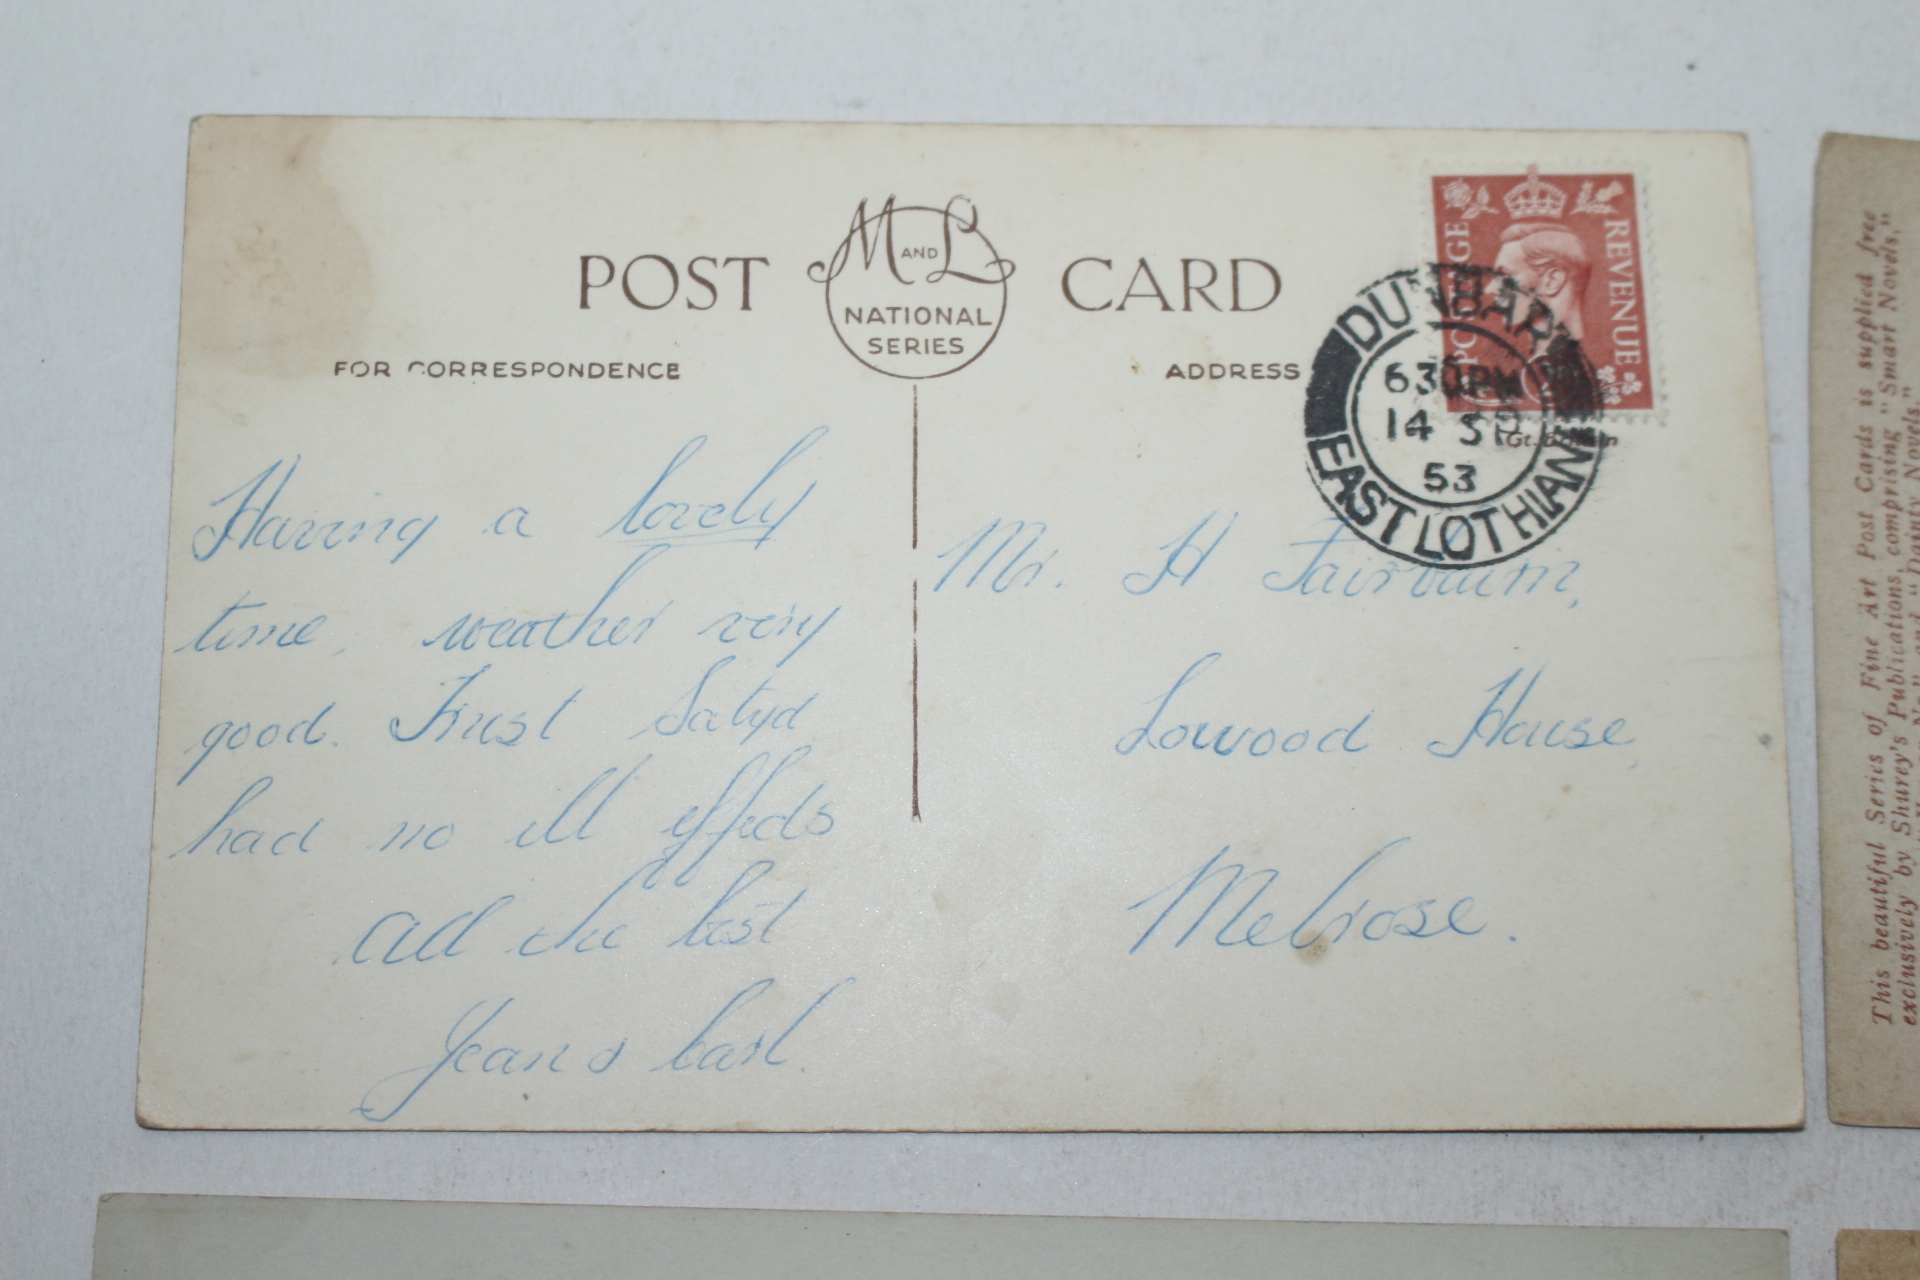 POST M AND L CARD
NATIONAL
SERIES
FOR CORRESPONDENCE
ADDRESS
POSTAGE REVENUE
DUNBAR
630PM
14 SP
53
EAST LOTHIAN
Having a lovely
time, weather very
good. Trust Satyd
had no ill effects
All the best
Jean &
Mr. H Fairbairn,
Lowood House,
Melrose.
This beautiful Series of Fine Art Post Cards is supplied free
exclusively by Shurey's Publications, comprising "Smart Novels,"
and "Dainty Novels."